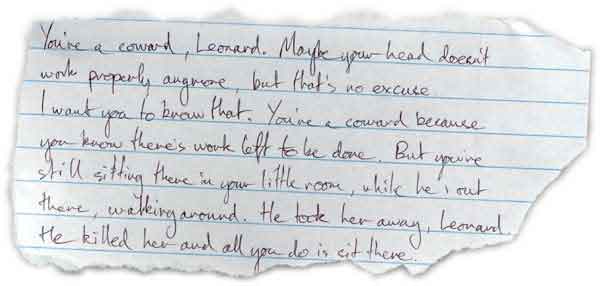 You're a coward, Leonard. Maybe your head doesn't
work properly anymore, but that's no excuse
I want you to know that. You're a coward because
you know there's work left to be done. But you're
still sitting there in your little room, while he's out
there, walking around. He took her away, Leonard.
He killed her and all you do is sit there.